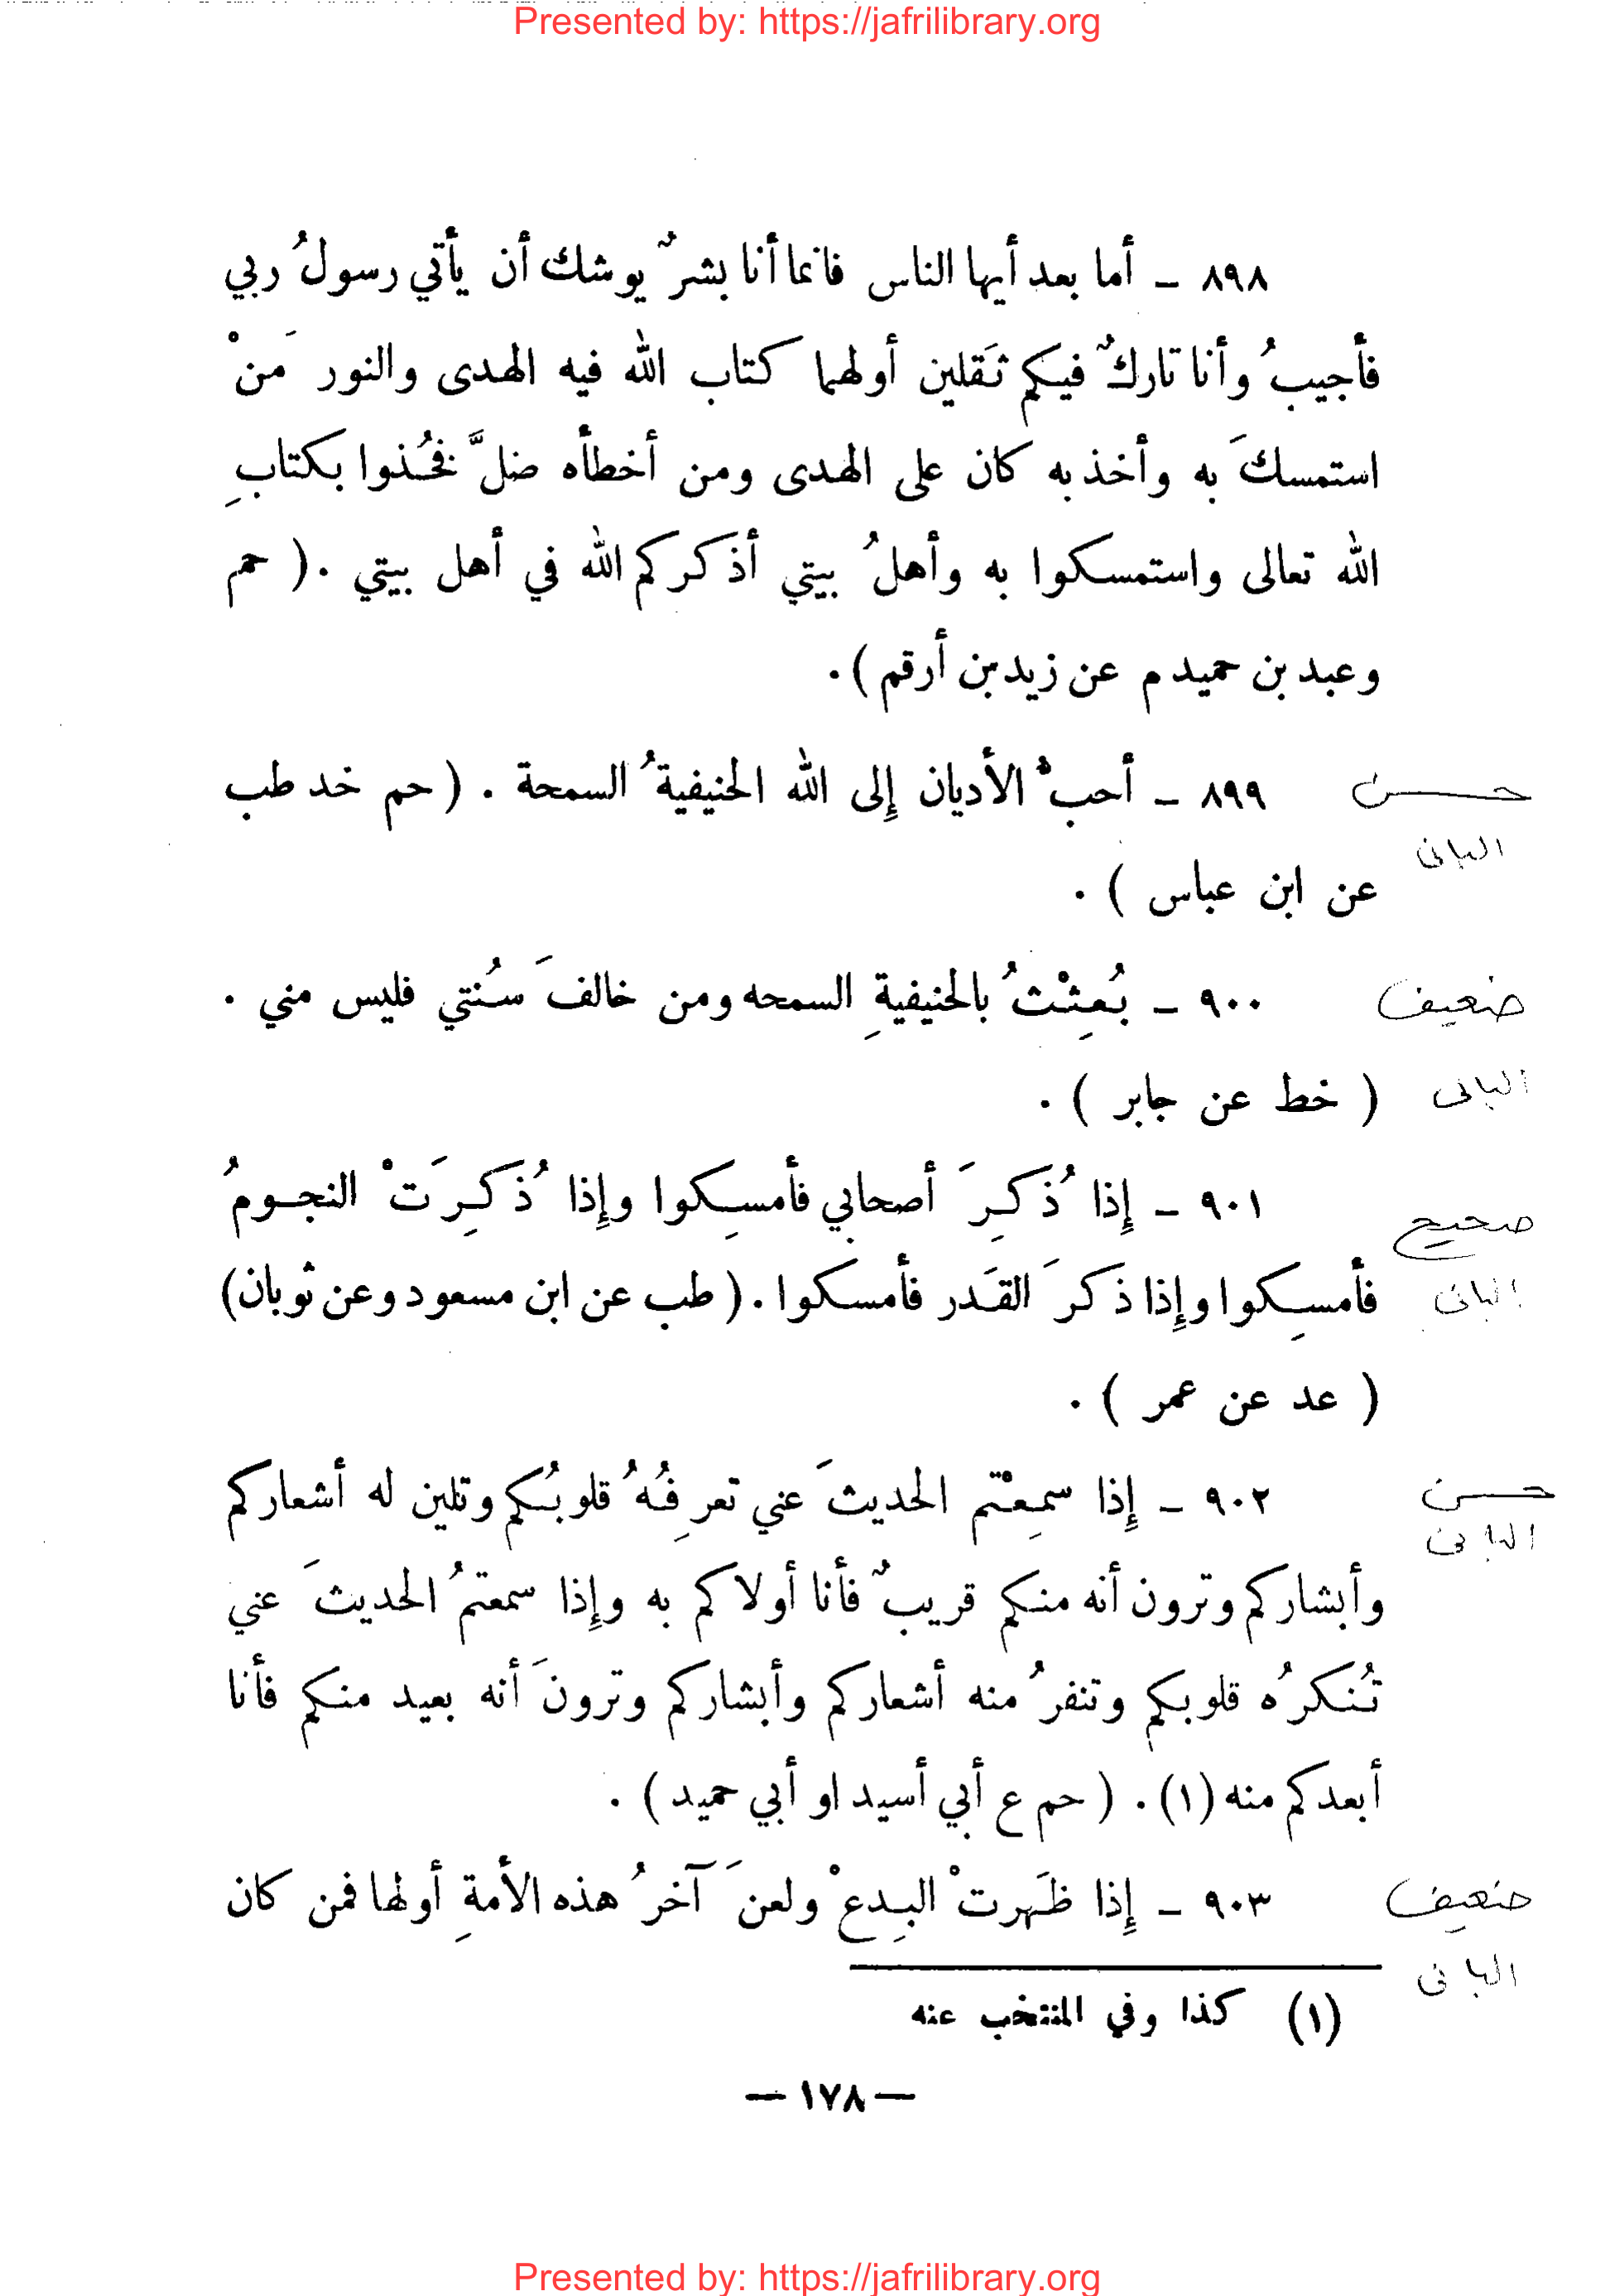 Presented by: https://jafrilibrary.org
٨٩٨ – أما بعد أيها الناس فانما أنا بشرٌ يوشك أن يأتي رسولُ ربي
فأجيبُ وأنا تاركٌ فيكم ثَقلين أولهما كتاب الله فيه الهدى والنور مَنْ
استمسكَ به وأخذ به كان على الهدى ومن أخطأه ضلَّ فخُذوا بكتابِ
الله تعالى واستمسكوا به وأهلُ بيتي أذكركم الله في أهل بيتي . ( حم
وعبد بن حميد م عن زيد بن أرقم ) .
٨٩٩ – أحبُّ الأديان إلى الله الحنيفيةُ السمحة . ( حم خد طب
حسن
البانى
عن ابن عباس ) .
٩٠٠ – بُعِثْتُ بالحنيفيةِ السمحه ومن خالفَ سُنتي فليس مني .
ضعيف
( خط عن جابر ) .
البانى
٩٠١ – إِذا ذُكِرَ أصحابي فأمسِكوا وإِذا ذُكِرَتْ النجومُ
صحيح
فأمسِكوا وإِذا ذكرَ القَدر فأمسكوا . ( طب عن ابن مسعود وعن ثوبان )
البانى
( عد عن عمر ) .
٩٠٢ – إِذا سمِعْتم الحديثَ عني تعرِفُهُ قلوبُكم وتلين له أشعاركم
حسن
البانى
وأبشاركم وترون أنه منكم قريبٌ فأنا أولاكم به وإِذا سمعتمُ الحديثَ عني
تُنكرُه قلوبكم وتنفرُ منه أشعاركم وأبشاركم وترونَ أنه بعيد منكم فأنا
أبعدكم منه (١) . ( حم ع أبي أسيد او أبي حميد ) .
٩٠٣ – إِذا ظَهرتْ البِدعْ ولعنَ آخرُ هذه الأمةِ أولها فمن كان
ضعيف
البانى
(١) كذا وفي المنتخب عنه
— ١٧٨ —
Presented by: https://jafrilibrary.org